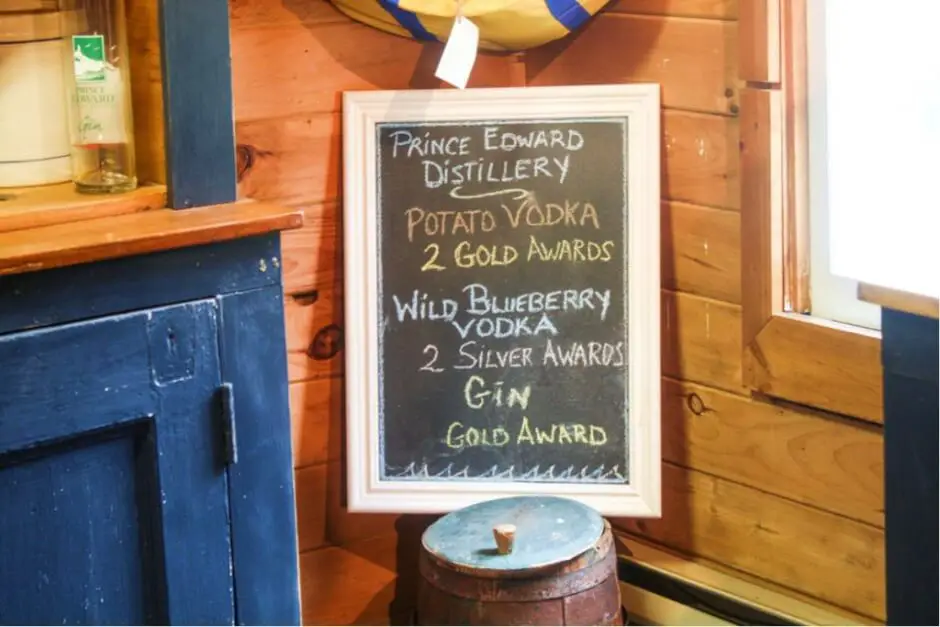 PRINCE
EDWARD
Gin
PRINCE EDWARD
DISTILLERY
POTATO VODKA
2 GOLD AWARDS
WILD BLUEBERRY
VODKA
2 SILVER AWARDS
GIN
GOLD AWARD